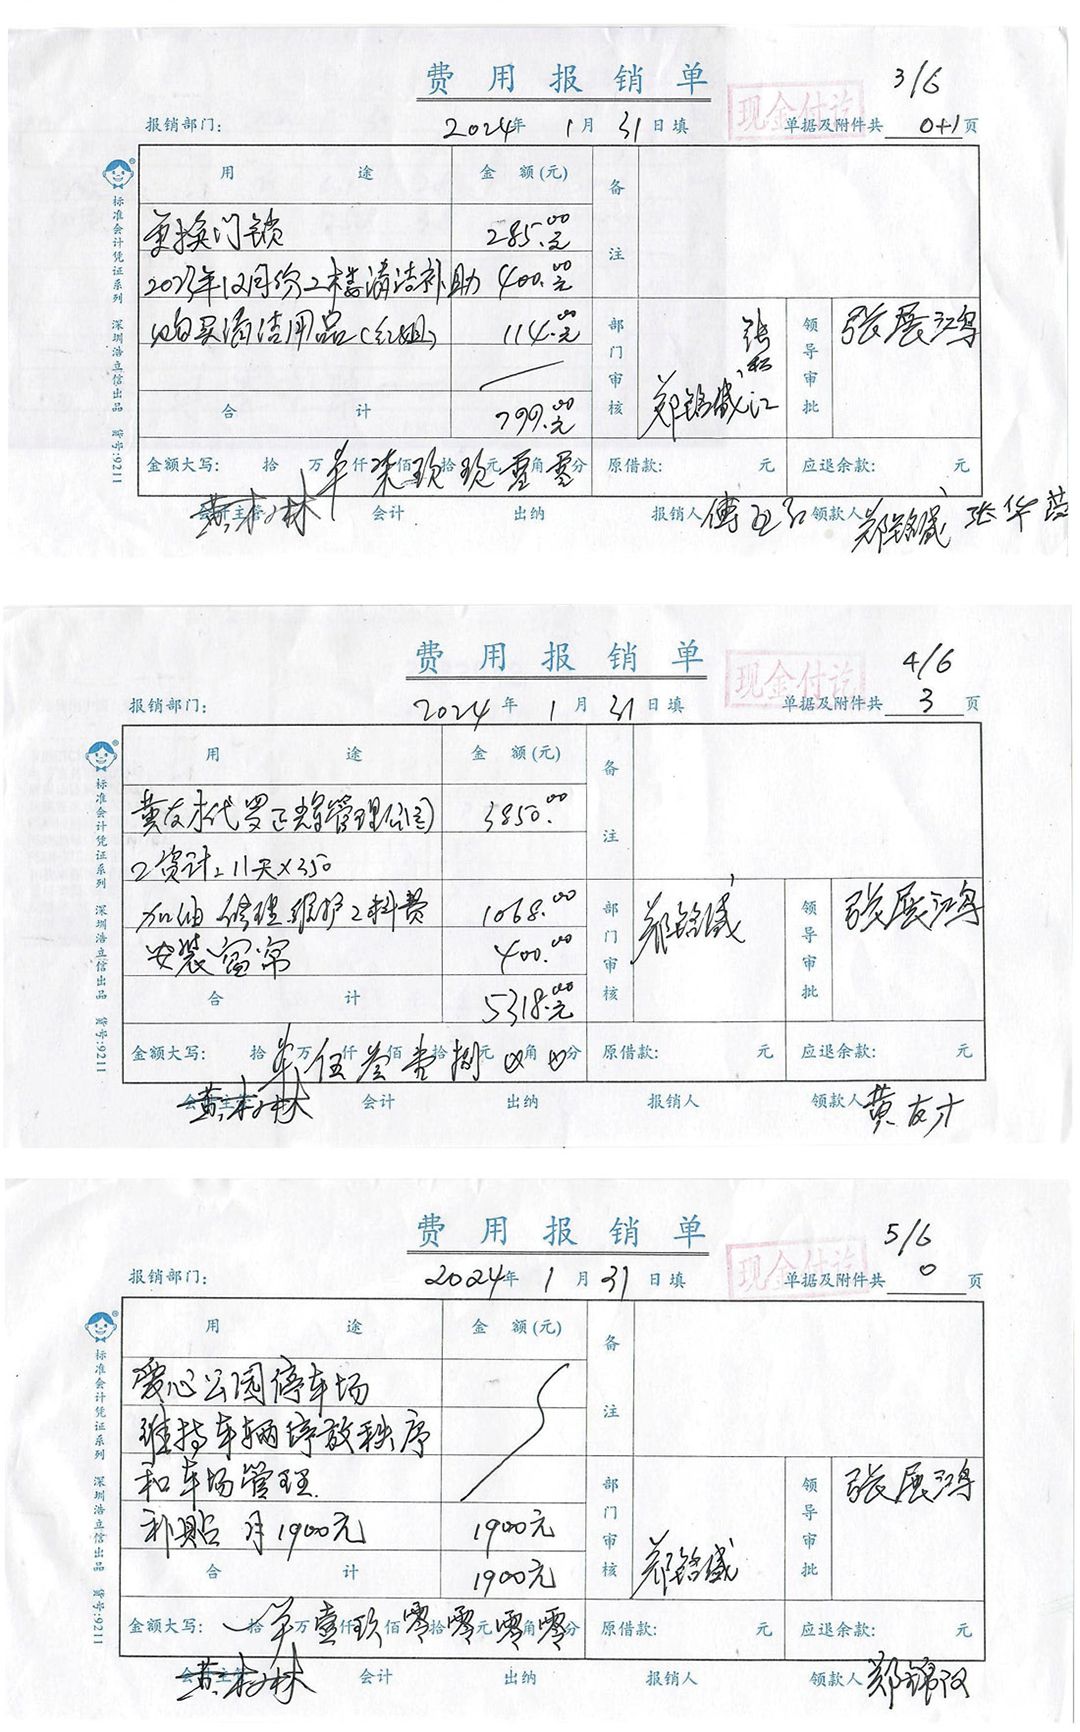 费用报销单
3/6
现金付讫
报销部门:
2024年 1月 31日填
单据及附件共 0+1 页
用途 金额(元) 备注
更换门锁 285.00元
2023年12月份工楼清洁补助 400.00元
购买清洁用品(红姐) 114.00元
部门审核 郑锦盛 领导审批 张展鸿
合计 799.00元
金额大写: 拾万 仟柒佰玖拾玖元零角零分 原借款: 元 应退余款: 元
会计主管 黄树林 会计 出纳 报销人 领款人 张华
标准会计凭证系列 深圳浩立信出品 货号:9211
费用报销单
4/6
现金付讫
报销部门:
2024年 1月 31日填
单据及附件共 3 页
用途 金额(元) 备注
黄友才代罗正 管理公园 3850.00
工资计:11天×350
加油 修理维护工料费 1068.00
安装窗帘 400.00
部门审核 郑锦盛 领导审批 张展鸿
合计 5318.00元
金额大写: 拾万伍仟叁佰壹拾捌元 角 分 原借款: 元 应退余款: 元
会计主管 黄树林 会计 出纳 报销人 领款人 黄友才
标准会计凭证系列 深圳浩立信出品 货号:9211
费用报销单
5/6
现金付讫
报销部门:
2024年 1月 31日填
单据及附件共 0 页
用途 金额(元) 备注
爱心公园停车场
维持车辆停放秩序
和车场管理
补贴 月1900元 1900元
部门审核 郑锦盛 领导审批 张展鸿
合计 1900元
金额大写: 拾万壹仟玖佰零拾零元零角零分 原借款: 元 应退余款: 元
会计主管 黄树林 会计 出纳 报销人 领款人 郑锦汉
标准会计凭证系列 深圳浩立信出品 货号:9211